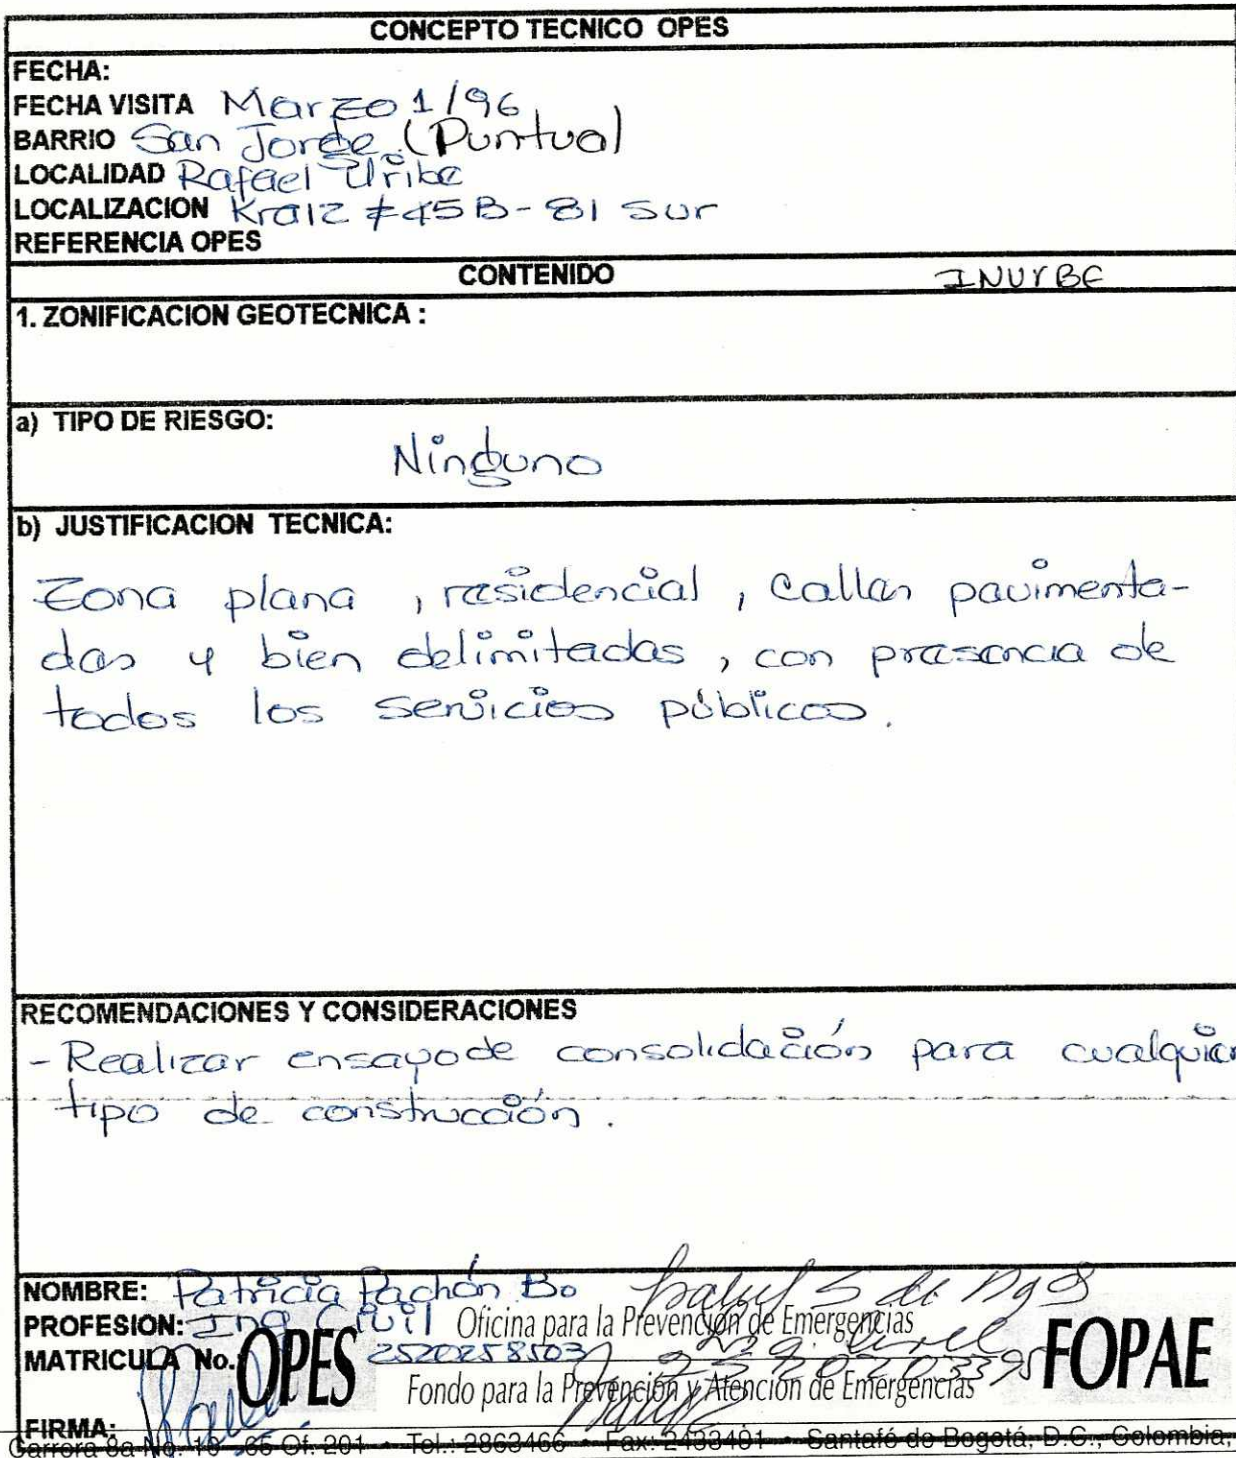 CONCEPTO TECNICO OPES
FECHA:
FECHA VISITA Marzo 1/96
BARRIO San Jorge (Puntual)
LOCALIDAD Rafael Uribe
LOCALIZACION Kra 12 #45B-81 Sur
REFERENCIA OPES
CONTENIDO INURBE
1. ZONIFICACION GEOTECNICA :
a) TIPO DE RIESGO:
Ninguno
b) JUSTIFICACION TECNICA:
Zona plana, residencial, calles pavimenta-
das y bien delimitadas, con presencia de
todos los servicios públicos.
RECOMENDACIONES Y CONSIDERACIONES
- Realizar ensayo de consolidación para cualquier
tipo de construcción.
NOMBRE: Patricia Pachón Bo
PROFESION: Ing Civil Oficina para la Prevención de Emergencias
MATRICULA No. OPES 2520258503 FOPAE
Fondo para la Prevención y Atención de Emergencias
FIRMA:
Carrera 8a No. 10 - 65 Of. 201 • Tel.: 2863466 • Fax: 2433401 • Santafé de Bogotá, D.C., Colombia,